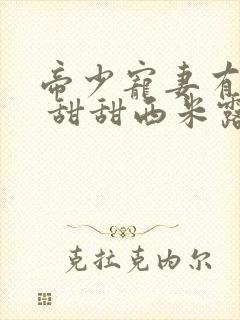 帝少宠妻有
甜甜西米露
克拉克内尔